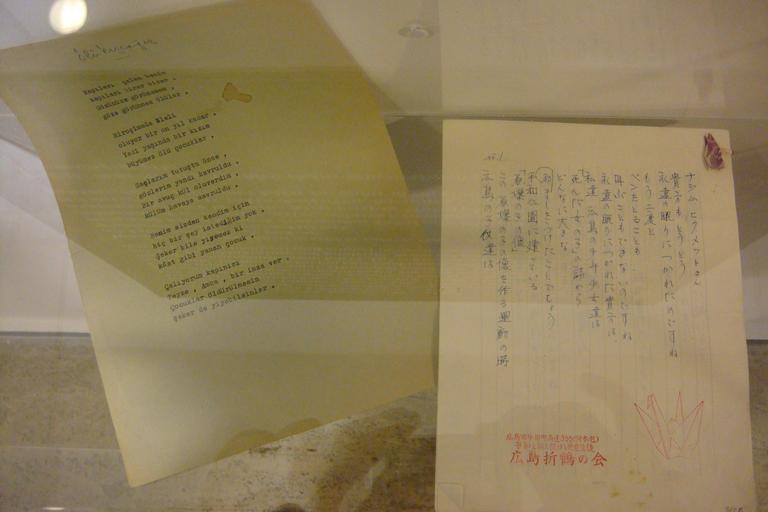 Kapıları çalan benim
kapıları birer birer.
Gözünüze görünemem,
göze görünmez ölüler.
Hiroşimada öleli
oluyor bir on yıl kadar.
Yedi yaşında bir kızım
büyümez ölü çocuklar.
Saçlarım tutuştu önce,
gözlerim yandı kavruldu.
Bir avuç kül oluverdim
külüm havaya savruldu.
Benim sizden kendim için
hiç bir şey istediğim yok.
Şeker bile yiyemez ki
kâat gibi yanan çocuk.
Çalıyorum kapınızı
Teyze, Amca, bir imza ver.
Çocuklar öldürülmesin
şeker de yiyebilsinler.
ナジム ヒクメットさん
貴方もとうとう
永遠の眠りにつかれたのですね
もう二度と
ペンをとることも
叫ぶこともできないのですね
永遠の眠りにつかれた貴方は
私達広島の少年少女達は
死んだ女の子の詩から
どんなに大きな
平和公園に建っている
原爆の子の像
この原爆の子の像を作る運動の時
広島の子供達は
広島折鶴の会